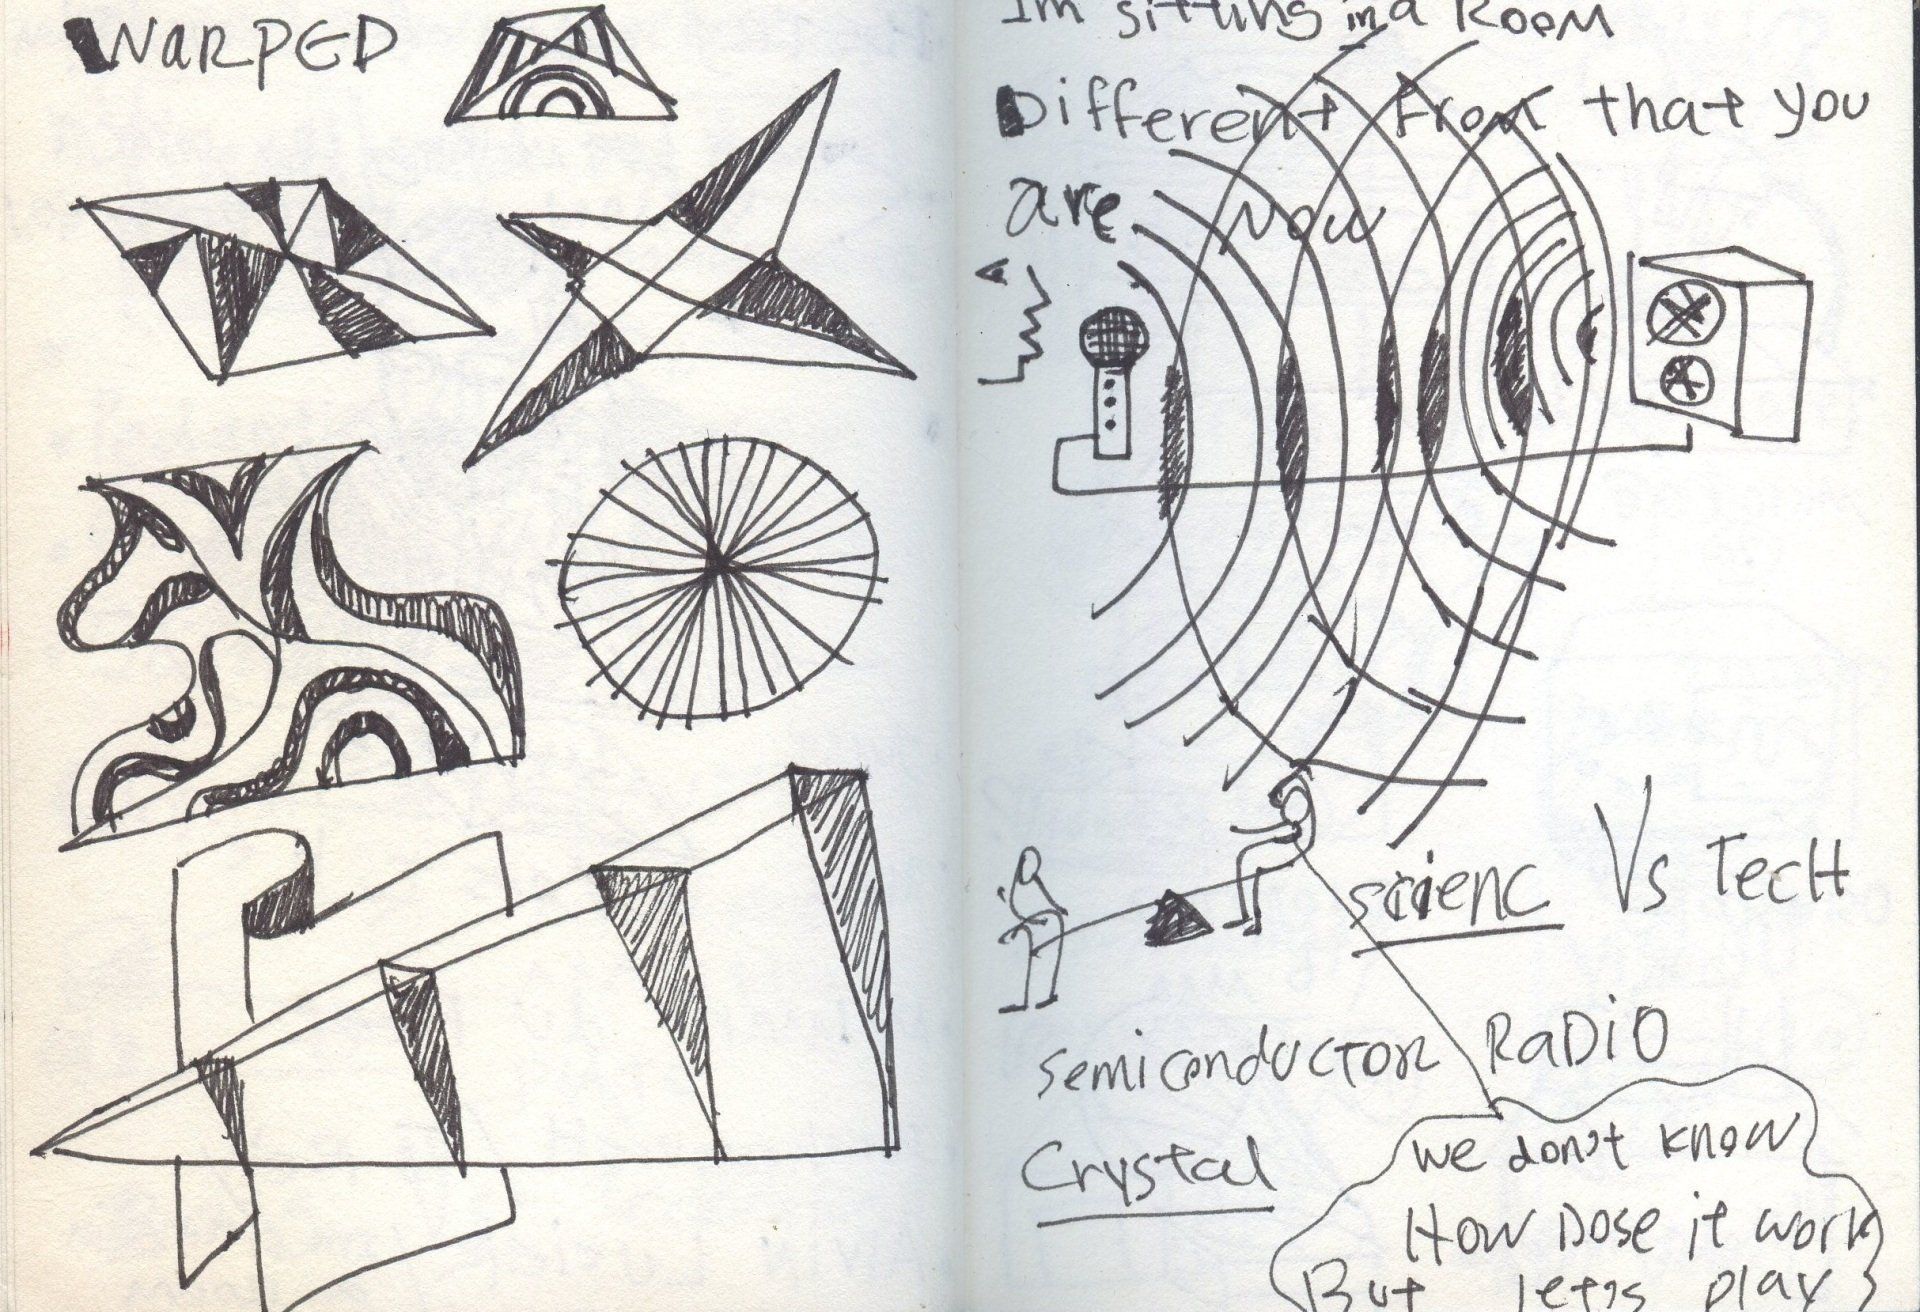 WARPED
Im sitting in a Room
Different From that you
are Now
scienc Vs Tech
semiconductor RaDio
Crystal
we don't know
How Dose it work
But let's play